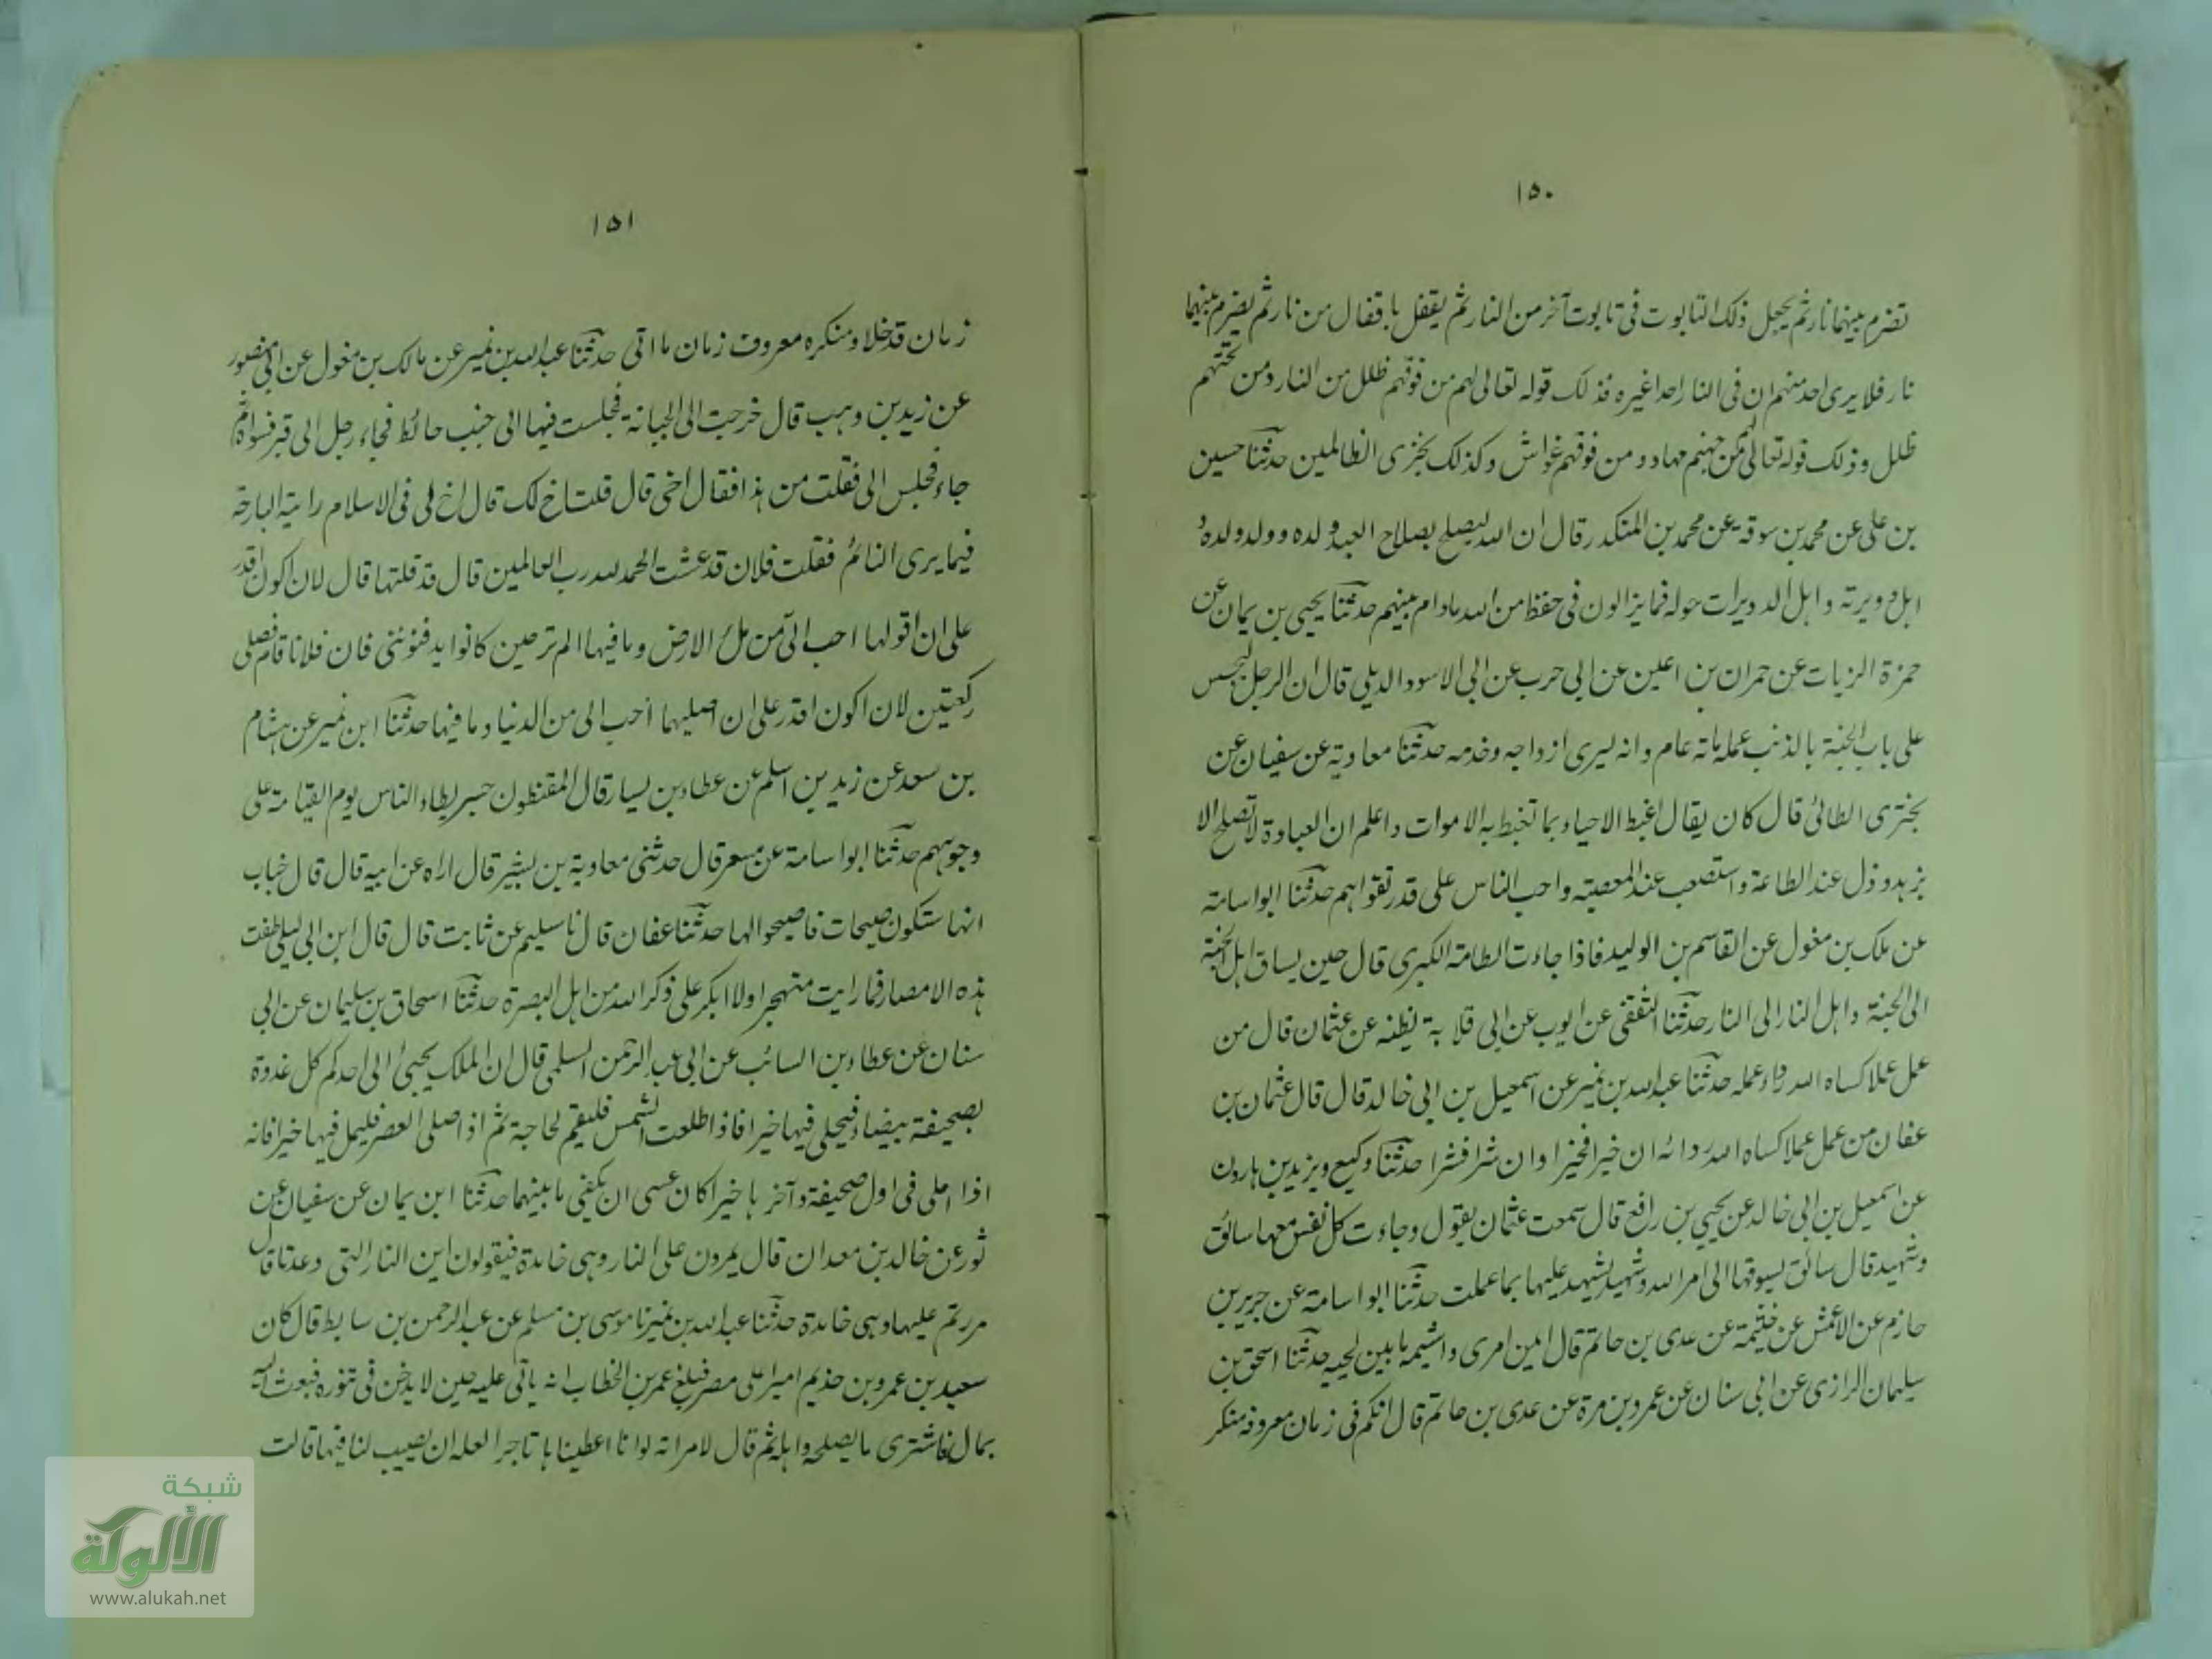 ١٥٠
تضرم بينهما نار ثم يجعل ذلك التابوت فى تابوت آخر من النار ثم يقفل باقفال من نار ثم يضرم بينهما
نار فلا يرى احد منهم ان فى النار احدا غيره فذلك قوله تعالى لهم من فوقهم ظلل من النار ومن تحتهم
ظلل وذلك قوله تعالى لهم من جهنم مهاد ومن فوقهم غواش وكذلك نجزى الظالمين حدثنا حسين
بن على عن محمد بن سوقة عن محمد بن المنكدر قال ان الله ليصلح بصلاح العبد ولده وولد ولده و
اهل دويرته واهل الدويرات حوله فما يزالون فى حفظ من الله مادام بينهم حدثنا يحيى بن يمان عن
حمزة الزيات عن حمران بن اعين عن ابى حرب عن ابى الاسود الديلى قال ان الرجل ليحبس
على باب الجنة بالذنب عمله مائة عام وانه ليرى ازواجه وخدمه حدثنا معاوية عن سفيان عن
بخترى الطائى قال كان يقال اغبط الاحياء بما تغبط به الاموات واعلم ان العبادة لا تصلح الا
بزهد وذل عند الطاعة واستصعب عند المعصية واحب الناس على قدر تقواهم حدثنا ابواسامة
عن ملك بن مغول عن القاسم بن الوليد فاذا جاءت الطامة الكبرى قال حين يساق اهل الجنة
الى الجنة واهل النار الى النار حدثنا الثقفى عن ايوب عن ابى قلابة يظنه عن عثمان قال من
عمل عملا كساه الله رداء عمله حدثنا عبدالله بن نمير عن اسمعيل بن ابى خالد قال قال عثمان بن
عفان من عمل عملا كساه الله ردائه ان خيرا فخيرا وان شرا فشرا حدثنا وكيع ويزيد بن هارون
عن اسمعيل بن ابى خالد عن يحيى بن رافع قال سمعت عثمان يقول وجاءت كل نفس معها سائق
وشهيد قال سائق يسوقها الى امر الله وشهيد يشهد عليها بما عملت حدثنا ابواسامة عن جرير بن
حازم عن الاعمش عن خثيمة عن عدى بن حاتم قال ايمن امرى واشيمه ما بين لحييه حدثنا اسحق بن
سليمان الرازى عن ابى سنان عن عمرو بن مرة عن عدى بن حاتم قال انكم فى زمان معروفه منكر
١٥١
زمان قد خلا ومنكره معروف زمان ما اتى حدثنا عبدالله بن نمير عن مالك بن مغول عن ابى منصور
عن زيد بن وهب قال خرجت الى الجبانة فجلست فيها الى جنب حائط فجاء رجل الى قبر فسواه ثم
جاء فجلس الى فقلت من هذا فقال اخى قال قلت اخ لك قال اخ لى فى الاسلام رايته البارحة
فيما يرى النائم فقلت فلان قد عشت الحمد لله رب العالمين قال قد قلتها قال لان اكون اقدر
على ان اقولها احب الى من ملء الارض وما فيها الم تر حين كانوا يدفنوننى فان فلانا قام فصلى
ركعتين لان اكون اقدر على ان اصليهما احب الى من الدنيا وما فيها حدثنا ابن نمير عن هشام
بن سعد عن زيد بن اسلم عن عطاء بن يسار قال المقنطون جسر يطاء الناس يوم القيامة على
وجوههم حدثنا ابواسامة عن مسعر قال حدثنى معاوية بن بشير قال اراه عن ابيه قال قال خباب
انها ستكون صيحات فاصيحوا لها حدثنا عفان قال نا سليم عن ثابت قال قال ابن ابى ليلى طفت
هذه الامصار فما رايت متهجرا ولا ابكر على ذكر الله من اهل البصرة حدثنا اسحاق بن سليمان عن ابى
سنان عن عطاء بن السائب عن ابى عبدالرحمن السلمى قال ان الملك يجيئ الى احدكم كل غدوة
بصحيفة بيضاء فيملى فيها خيرا فاذا طلعت الشمس فليقم لحاجة ثم اذا صلى العصر فليمل فيها خيرا فانه
اذا املى فى اول صحيفة وآخرها خيرا كان عسى ان يكفى ما بينهما حدثنا ابن يمان عن سفيان عن
ثور عن خالد بن معدان قال يمرون على النار وهى خامدة فيقولون اين النار التى وعدنا قال
مررتم عليها وهى خامدة حدثنا عبدالله بن نمير نا موسى بن مسلم عن عبدالرحمن بن سابط قال كان
سعيد بن عمرو بن حذيم اميرا على مصر فبلغ عمر بن الخطاب انه ياتى عليه حين لا يدخن فى تنوره فبعث اليه
بمال فاشترى ما يصلحه واهله ثم قال لامراته لو انا اعطيناها تاجرا لعله ان يصيب لنا فيها قالت
شبكة
الألوكة
www.alukah.net